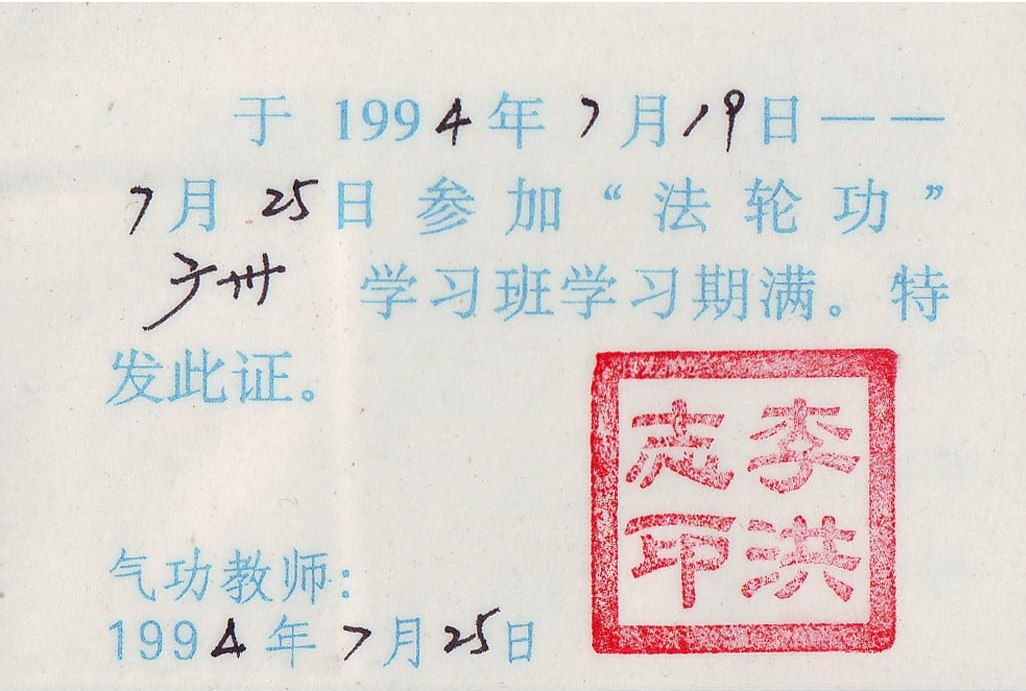 于 1994年 7月19日——
7月 25日 参 加 “ 法 轮 功 ”
广州 学习班学习期满。特
发此证。
李洪志印
气功教师:
1994年 7月25日